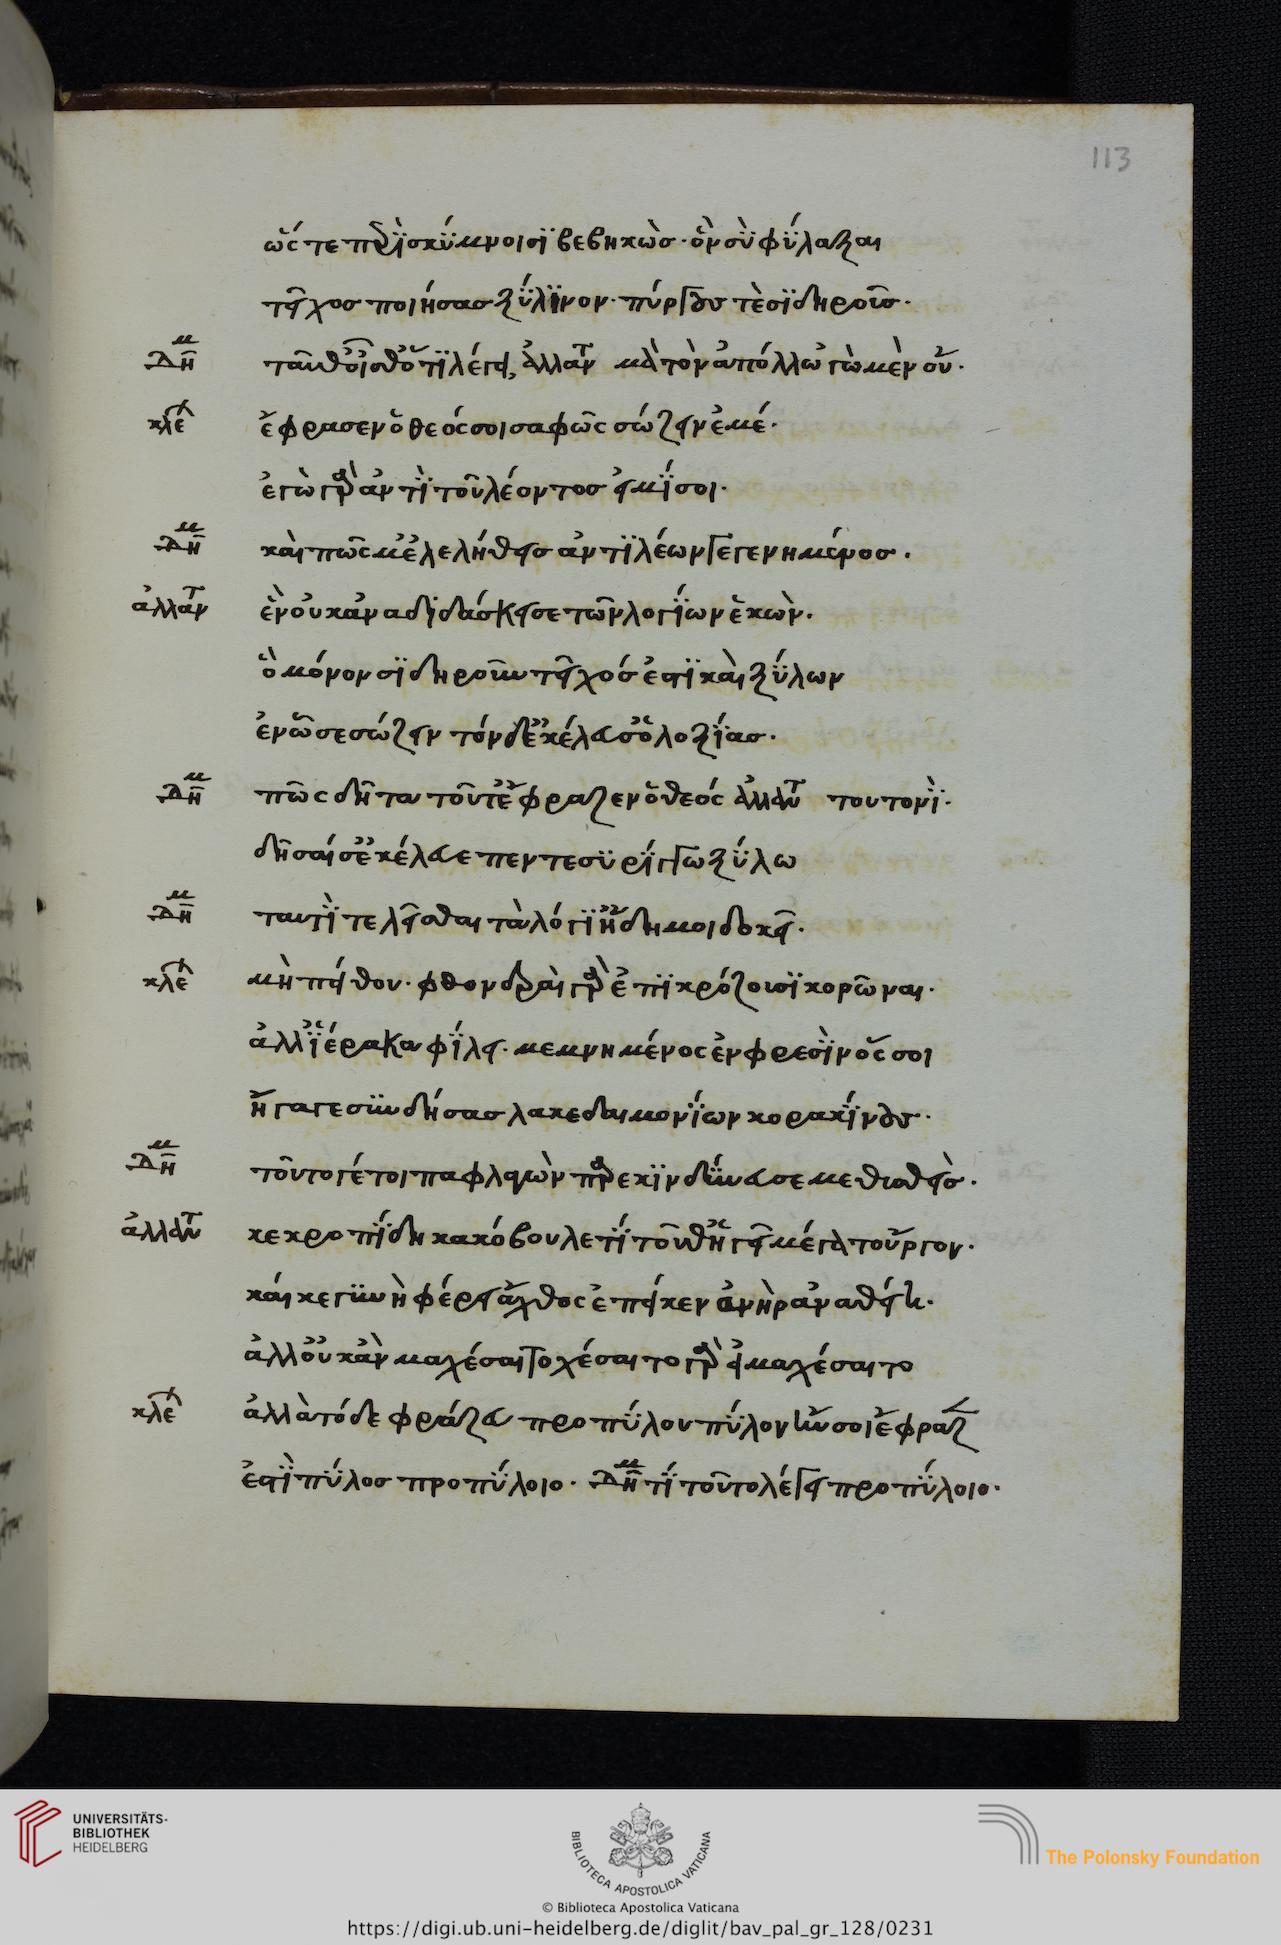 113
ὥς τε περὶ σκύμνοισι βεβηκὼς· ὃν σὺ φύλαξαι
τεῖχος ποιήσας ξύλινον· πύργους τὲ σιδηροῖς·
Δημ ταῦθ' οἶσθ' ὅτι λέγει, ἀλλαντ μὰ τὸν ἀπόλλω γὼ μὲν οὔ·
κλέ ἔφρασεν ὁ θεός σοι σαφῶς σώζειν ἐμέ·
ἐγὼ γὰρ ἀντὶ τοῦ λέοντος εἰμί σοι·
Δημ καὶ πῶς μ' ἐλελήθεις ἀντιλέων γεγενημένος·
ἀλλαντ ἓν οὐκ ἀναδιδάσκει σε τῶν λογίων ἑκὼν·
ὃ μόνον σιδηροῦν τεῖχός ἐστι καὶ ξύλων
ἐν ὧ σε σώζειν τόνδ' ἐκέλευσ' ὁ λοξίας·
Δημ πῶς δῆτα τοῦτ' ἔφραζεν ὁ θεός ἀλλαντ τουτονὶ·
δῆσαί σ' ἐκέλευε πεντεσυρίγγω ξύλω
Δημ ταυτὶ τελεῖσθαι τὰ λόγι' ἤδη μοι δοκεῖ·
κλέ μὴ πείθου· φθονεραὶ γὰρ ἐπικρώζουσι κορῶναι·
ἀλλ' ἱέρακα φίλει· μεμνημένος ἐν φρεσὶν ὅς σοι
ἤγαγε συνδήσας λακεδαιμονίων κορακίνους·
Δημ τοῦτο γέ τοι παφλαγὼν παρεκινδύνευσε μεθυσθεὶς·
ἀλλαντ κεκροπίδη κακόβουλε τί τοῦθ' ἡγεῖ μέγα τοὖργον·
καί κε γυνὴ φέρει ἄχθος ἐπεί κεν ἀνὴρ ἀναθείη·
ἀλλ' οὐκ ἂν μαχέσαιτο χέσαιτο γὰρ εἰ μαχέσαιτο
κλέ ἀλλὰ τόδε φράζευ προ πύλου πύλον ἥν σοι ἔφραζ
ἐστὶ πύλος προ πύλοιο· Δημ τί τοῦτο λέγει προ πύλοιο·
UNIVERSITÄTS-
BIBLIOTHEK
HEIDELBERG
BIBLIOTECA APOSTOLICA VATICANA
The Polonsky Foundation
© Biblioteca Apostolica Vaticana
https://digi.ub.uni-heidelberg.de/diglit/bav_pal_gr_128/0231